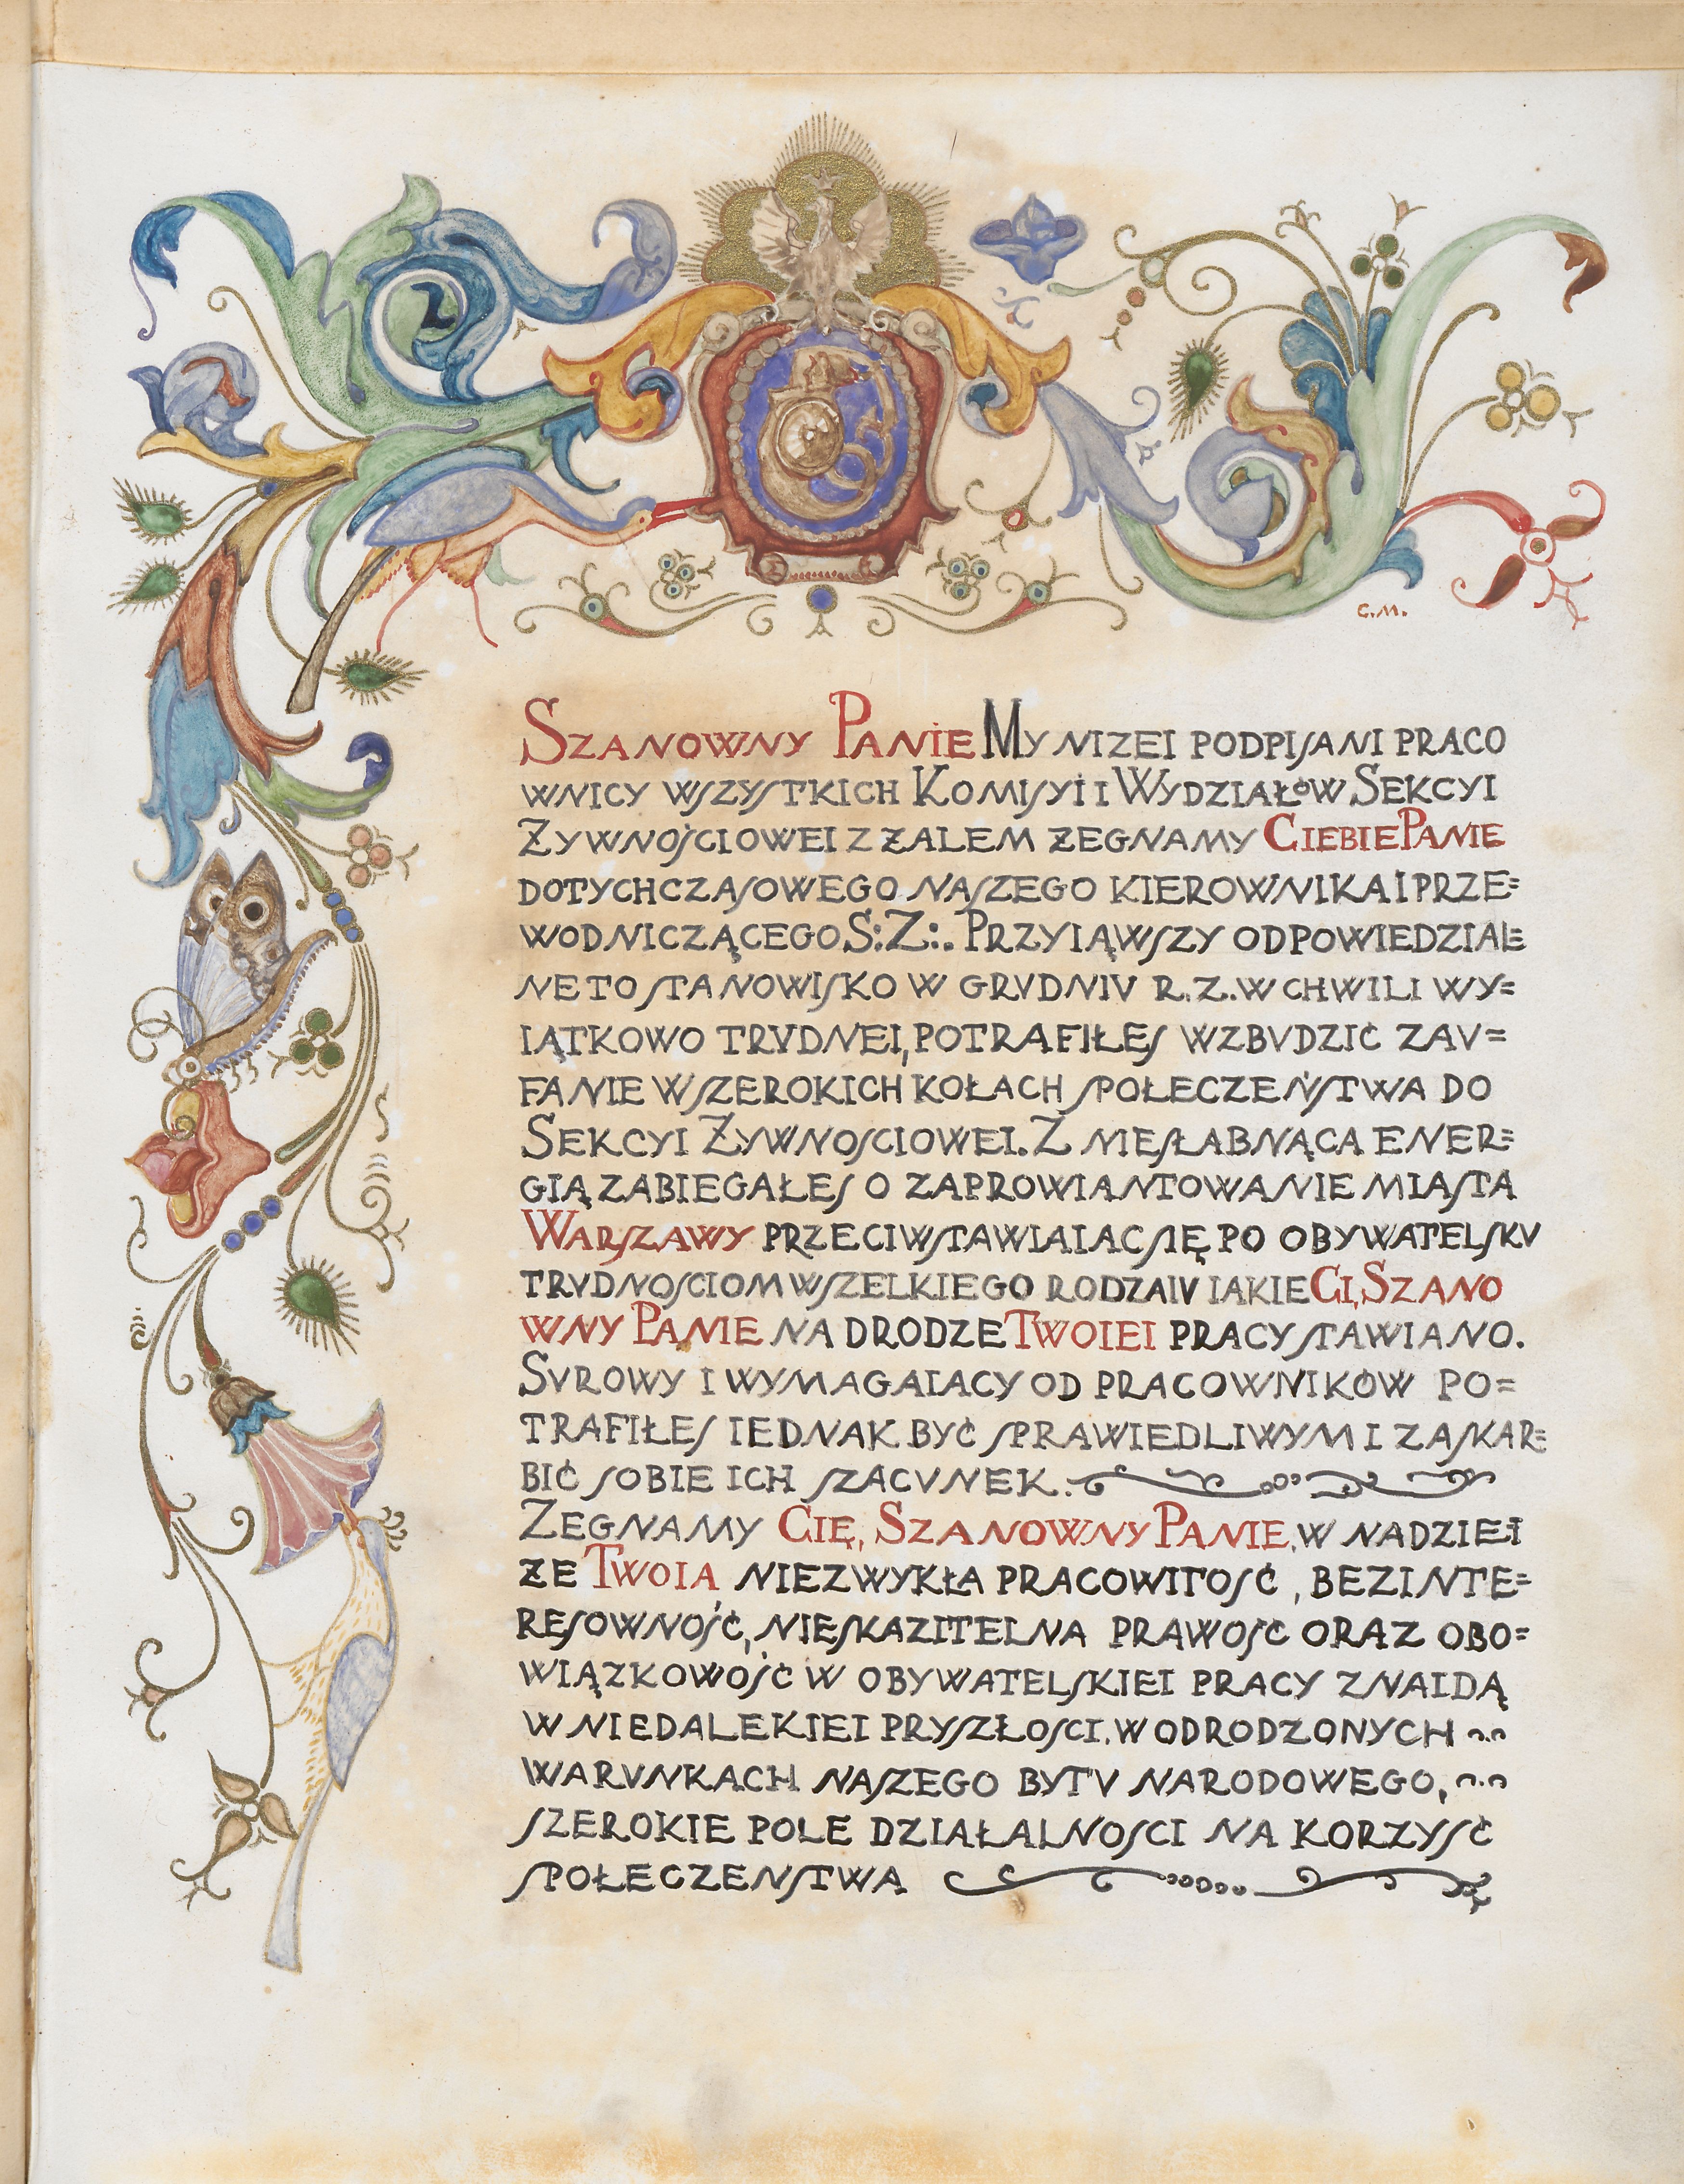 C.M.
SZANOWNY PANIE MY NIZEI PODPISANI PRACO
WNICY WSZYSTKICH KOMISYI I WYDZIAŁÓW SEKCYI
ŻYWNOŚCIOWEI Z ŻALEM ŻEGNAMY CIEBIE PANIE
DOTYCHCZASOWEGO NASZEGO KIEROWNIKA I PRZE=
WODNICZĄCEGO S:Z:. PRZYIĄWSZY ODPOWIEDZIAL=
NE TO STANOWISKO W GRVDNIV R.Z. W CHWILI WY=
IĄTKOWO TRVDNEI, POTRAFIŁES WZBVDZIĆ ZAV=
FANIE W SZEROKICH KOŁACH SPOŁECZEŃSTWA DO
SEKCYI ŻYWNOSCIOWEI. Z NIESŁABNĄCA ENER=
GIĄ ZABIEGAŁES O ZAPROWIANTOWANIE MIASTA
WARSZAWY PRZECIWSTAWIAIAC SIĘ PO OBYWATELSKV
TRVDNOSCIOM WSZELKIEGO RODZAIV IAKIE CI, SZANO
WNY PANIE NA DRODZE TWOIEI PRACY STAWIANO.
SVROWY I WYMAGAIACY OD PRACOWNIKÓW PO=
TRAFIŁES IEDNAK BYĆ SPRAWIEDLIWYM I ZASKAR=
BIĆ SOBIE ICH SZACVNEK.
ŻEGNAMY CIĘ, SZANOWNY PANIE, W NADZIEI
ŻE TWOIA NIEZWYKŁA PRACOWITOSĆ, BEZINTE=
RESOWNOŚĆ, NIESKAZITELNA PRAWOSĆ ORAZ OBO=
WIĄZKOWOŚĆ W OBYWATELSKIEI PRACY ZNAIDĄ
W NIEDALEKIEI PRYSZŁOSCI, W ODRODZONYCH
WARVNKACH NASZEGO BYTV NARODOWEGO,
SZEROKIE POLE DZIAŁALNOSCI NA KORZYSĆ
SPOŁECZENSTWA